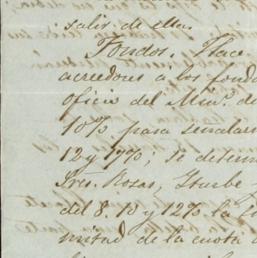 salir de ellas.
Fondos. Hace
acreedores a los fond
oficio del Min.º de
10% para señalar
12 y 17%, se determ
Sres. Rosas, Yturbe
del 8. 10 y 12% la
mitad de la cuota